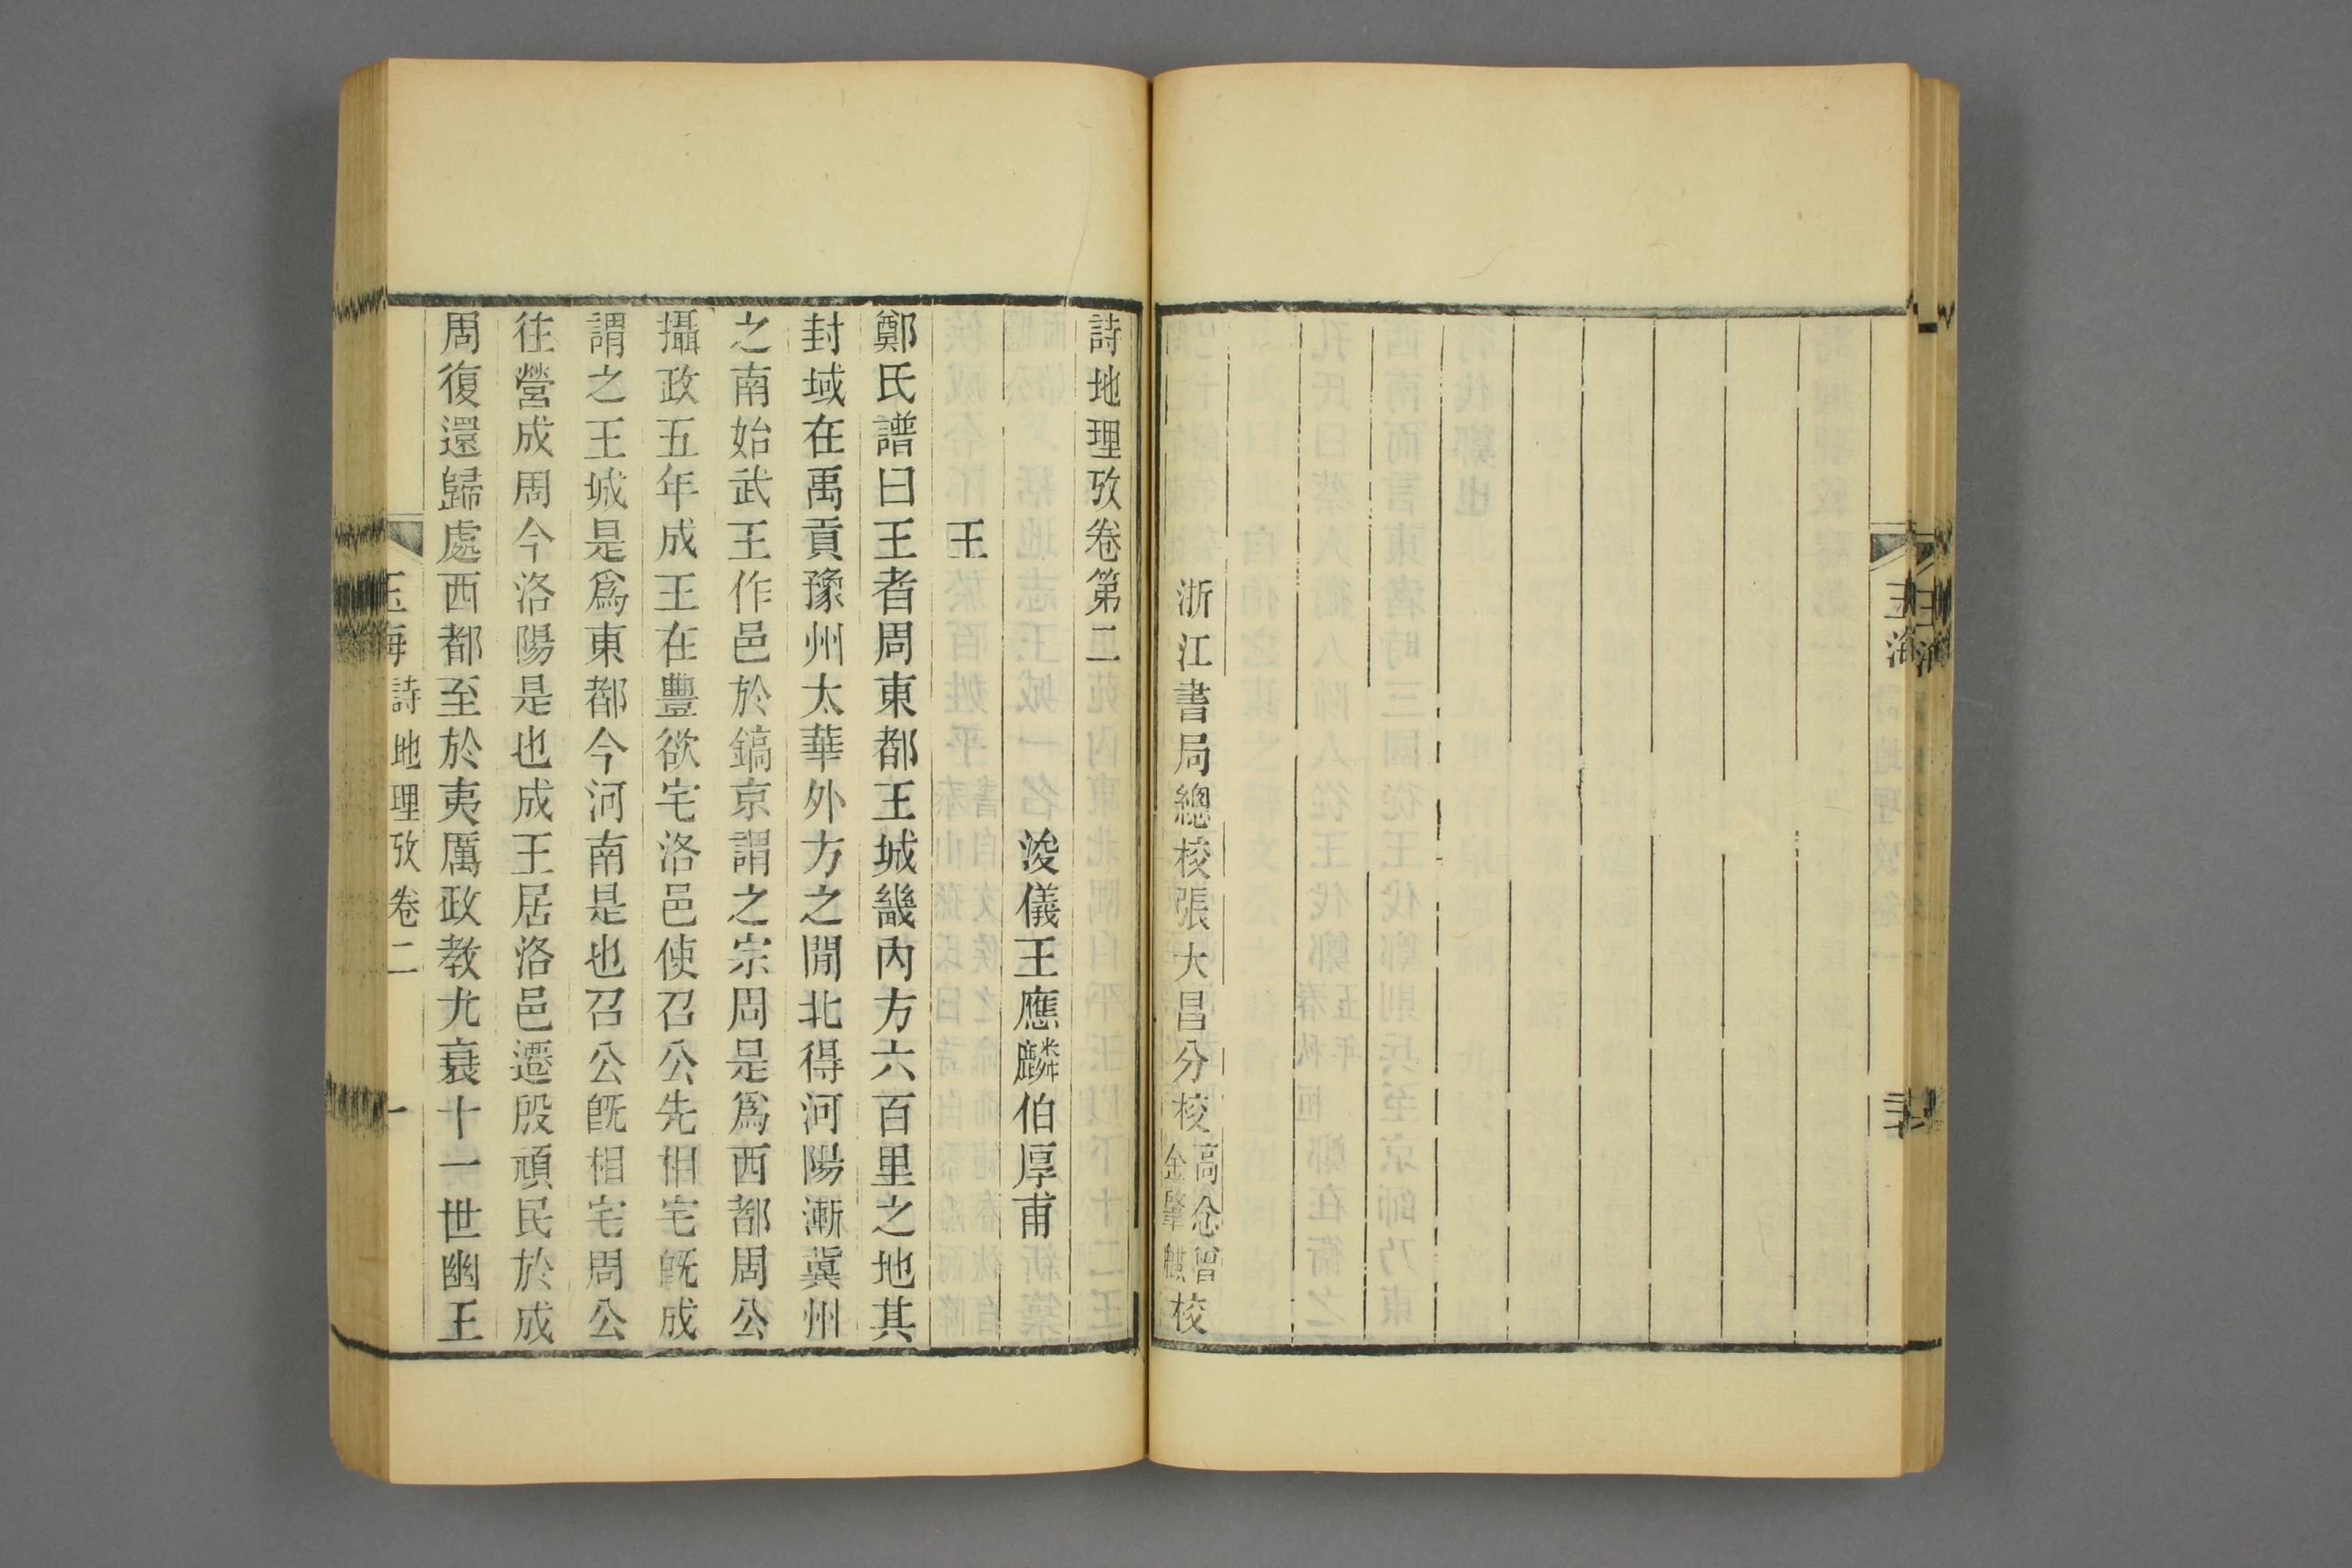 浙江書局總校張大昌分校高念曾金肇麒校
詩地理攷卷第二
浚儀王應麟伯厚甫
王
鄭氏譜曰王者周東都王城畿內方六百里之地其
封域在禹貢豫州太華外方之閒北得河陽漸冀州
之南始武王作邑於鎬京謂之宗周是爲西都周公
攝政五年成王在豐欲宅洛邑使召公先相宅旣成
謂之王城是爲東都今河南是也召公旣相宅周公
往營成周今洛陽是也成王居洛邑遷殷頑民於成
周復還歸處西都至於夷厲政教尤衰十一世幽王
玉海 詩地理攷卷二 一